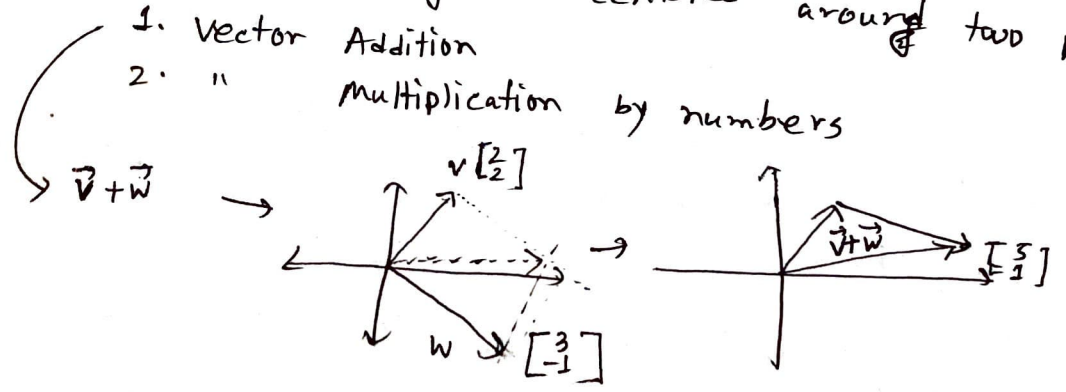 around two
1. Vector Addition
2. " Multiplication by numbers
v⃗ + w⃗ → v [2 2] → v⃗+w⃗ [5 1]
w [3 -1]